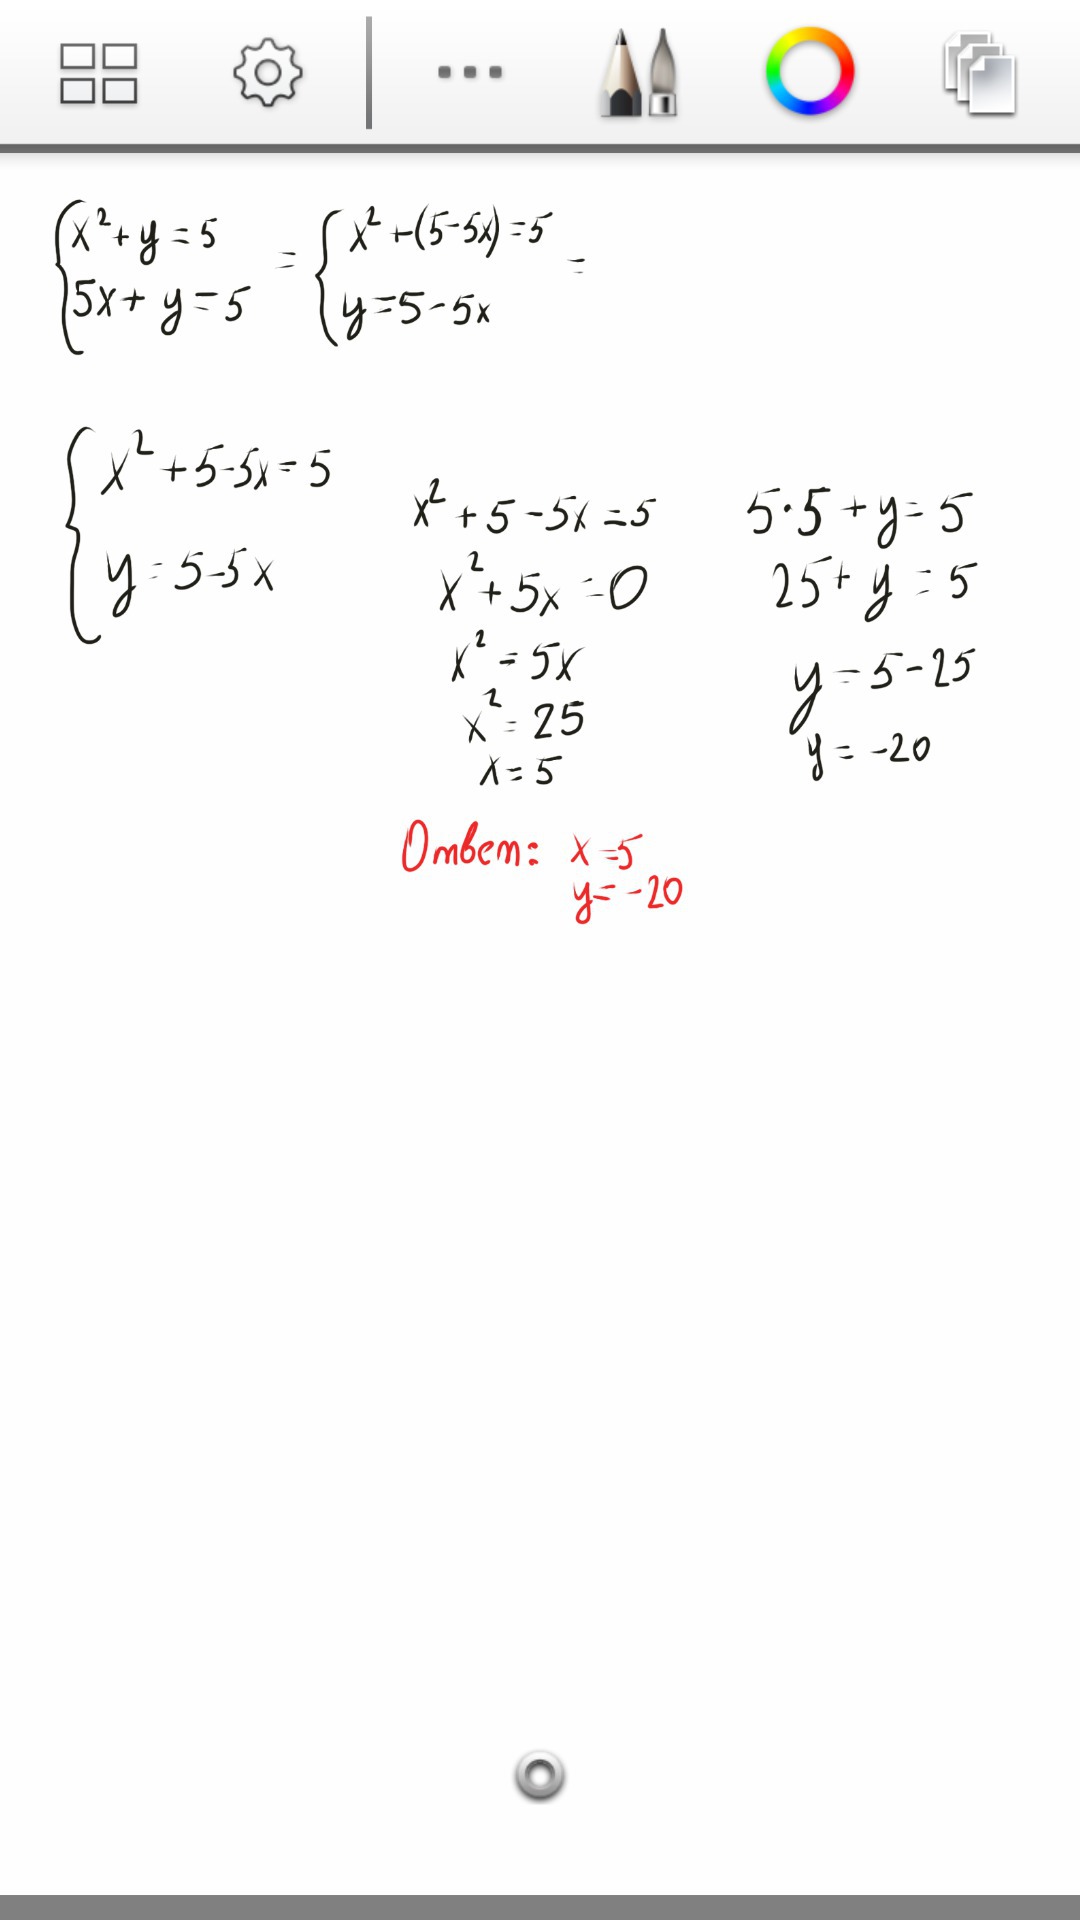 x²+y=5 = x²+(5-5x)=5 =
5x+y=5 y=5-5x
x²+5-5x=5
y=5-5x
x²+5-5x=5
x²+5x=0
x²=5x
x²=25
x=5
5·5+y=5
25+y=5
y=5-25
y=-20
Ответ: x=5
y=-20